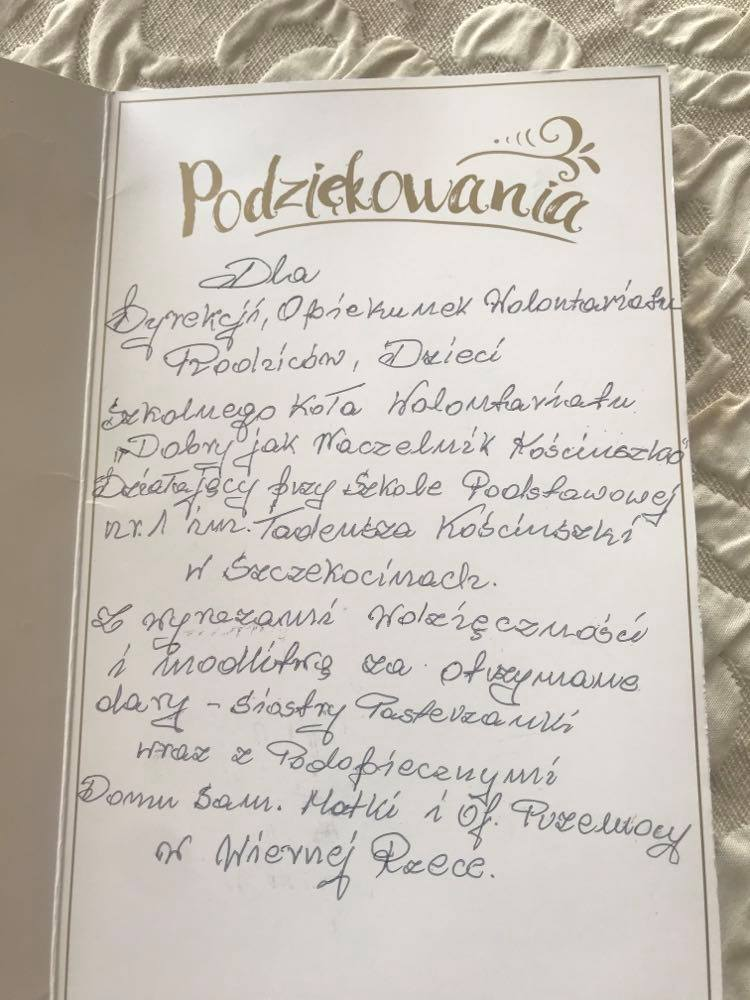 Podziękowania
Dla
Dyrekcji, Opiekunek Wolontariatu
Rodziców, Dzieci
Szkolnego Koła Wolontariatu
„Dobry jak Naczelnik Kościuszko"
Działający przy Szkole Podstawowej
nr.1 im. Tadeusza Kościuszki
w Szczekocinach.
Z wyrazami Wdzięczności
i modlitwą za otrzymane
dary - Siostry Pasterzanki
wraz z Podopiecznymi
Domu Sam. Matki i Of. Przemocy
w Wiernej Rzece.